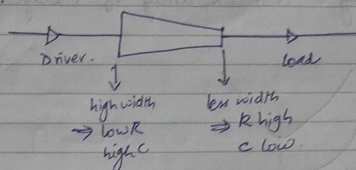 Driver.
load
high width
⇒ low R
high C
less width
⇒ R high
C low.